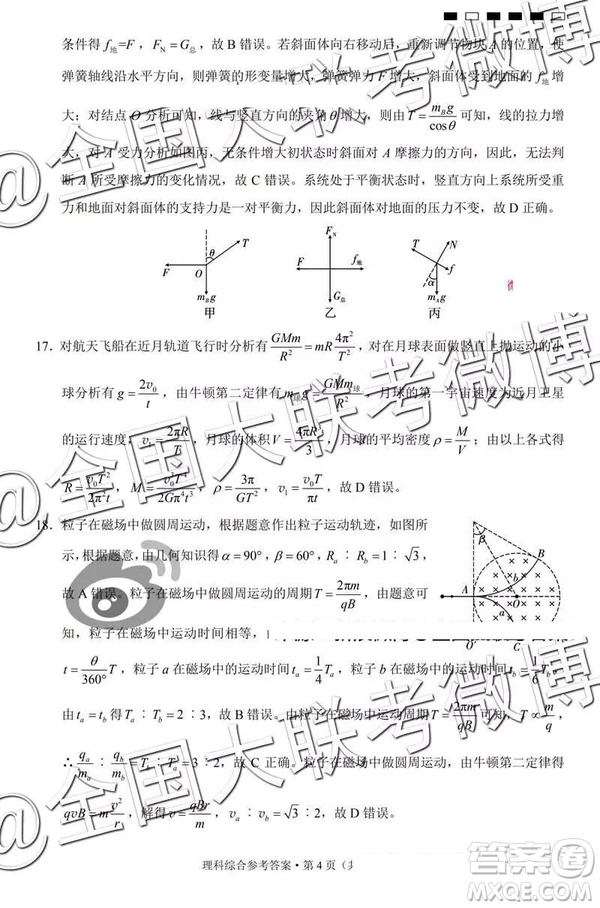 条件得 f地=F，F_N=G总，故 B 错误。若斜面体向右移动后，重新调节物块 A 的位置，使
弹簧轴线沿水平方向，则弹簧的形变量增大，弹簧弹力 F 增大；斜面体受到地面的 f地 增
大；对结点 O 分析可知，线与竖直方向的夹角 θ 增大，则由 T=m_Bg/cosθ 可知，线的拉力增
大，对 A 受力分析如图丙，无条件增大初状态时斜面对 A 摩擦力的方向，因此，无法判
断 A 所受摩擦力的变化情况，故 C 错误。系统处于平衡状态时，竖直方向上系统所受重
力和地面对斜面体的支持力是一对平衡力，因此斜面体对地面的压力不变，故 D 正确。
F O θ T m_Bg
F F_N f地 G总
T N f α m_Ag
甲 乙 丙
17．对航天飞船在近月轨道飞行时分析有 GMm/R²=mR4π²/T²，对在月球表面做竖直上抛运动的小
球分析有 g=2v₀/t，由牛顿第二定律有 m球g=GMm球/R²，月球的第一宇宙速度为近月卫星
的运行速度，v₁=2πR/T，月球的体积 V=4πR³/3，月球的平均密度 ρ=M/V；由以上各式得
R=v₀T²/2π²t，M=v₀³T⁴/2Gπ⁴t³，ρ=3π/GT²，v₁=v₀T/πt，故 D 错误。
18．粒子在磁场中做圆周运动，根据题意作出粒子运动轨迹，如图所
示，根据题意，由几何知识得 α=90°，β=60°，R_a∶R_b=1∶√3，
故 A 错误。粒子在磁场中做圆周运动的周期 T=2πm/qB，由题意可
知，粒子在磁场中运动时间相等，
β B A O α
t=θ/360°T，粒子 a 在磁场中的运动时间 t_a=1/4T_a，粒子 b 在磁场中的运动时间 t_b=1/6T_b，
由 t_a=t_b 得 T_a∶T_b=2∶3，故 B 错误。由粒子在磁场中运动周期 T=2πm/qB 可知，T∝m/q，
∴q_a/m_a∶q_b/m_b=T_b∶T_a=3∶2，故 C 正确。粒子在磁场中做圆周运动，由牛顿第二定律得
qvB=mv²/r，解得 v=qBr/m，v_a∶v_b=√3∶2，故 D 错误。
理科综合参考答案·第 4 页（
@全国大联考微博
@全国大联考微博
@全国大联考微博
答案圈
MXQE.COM